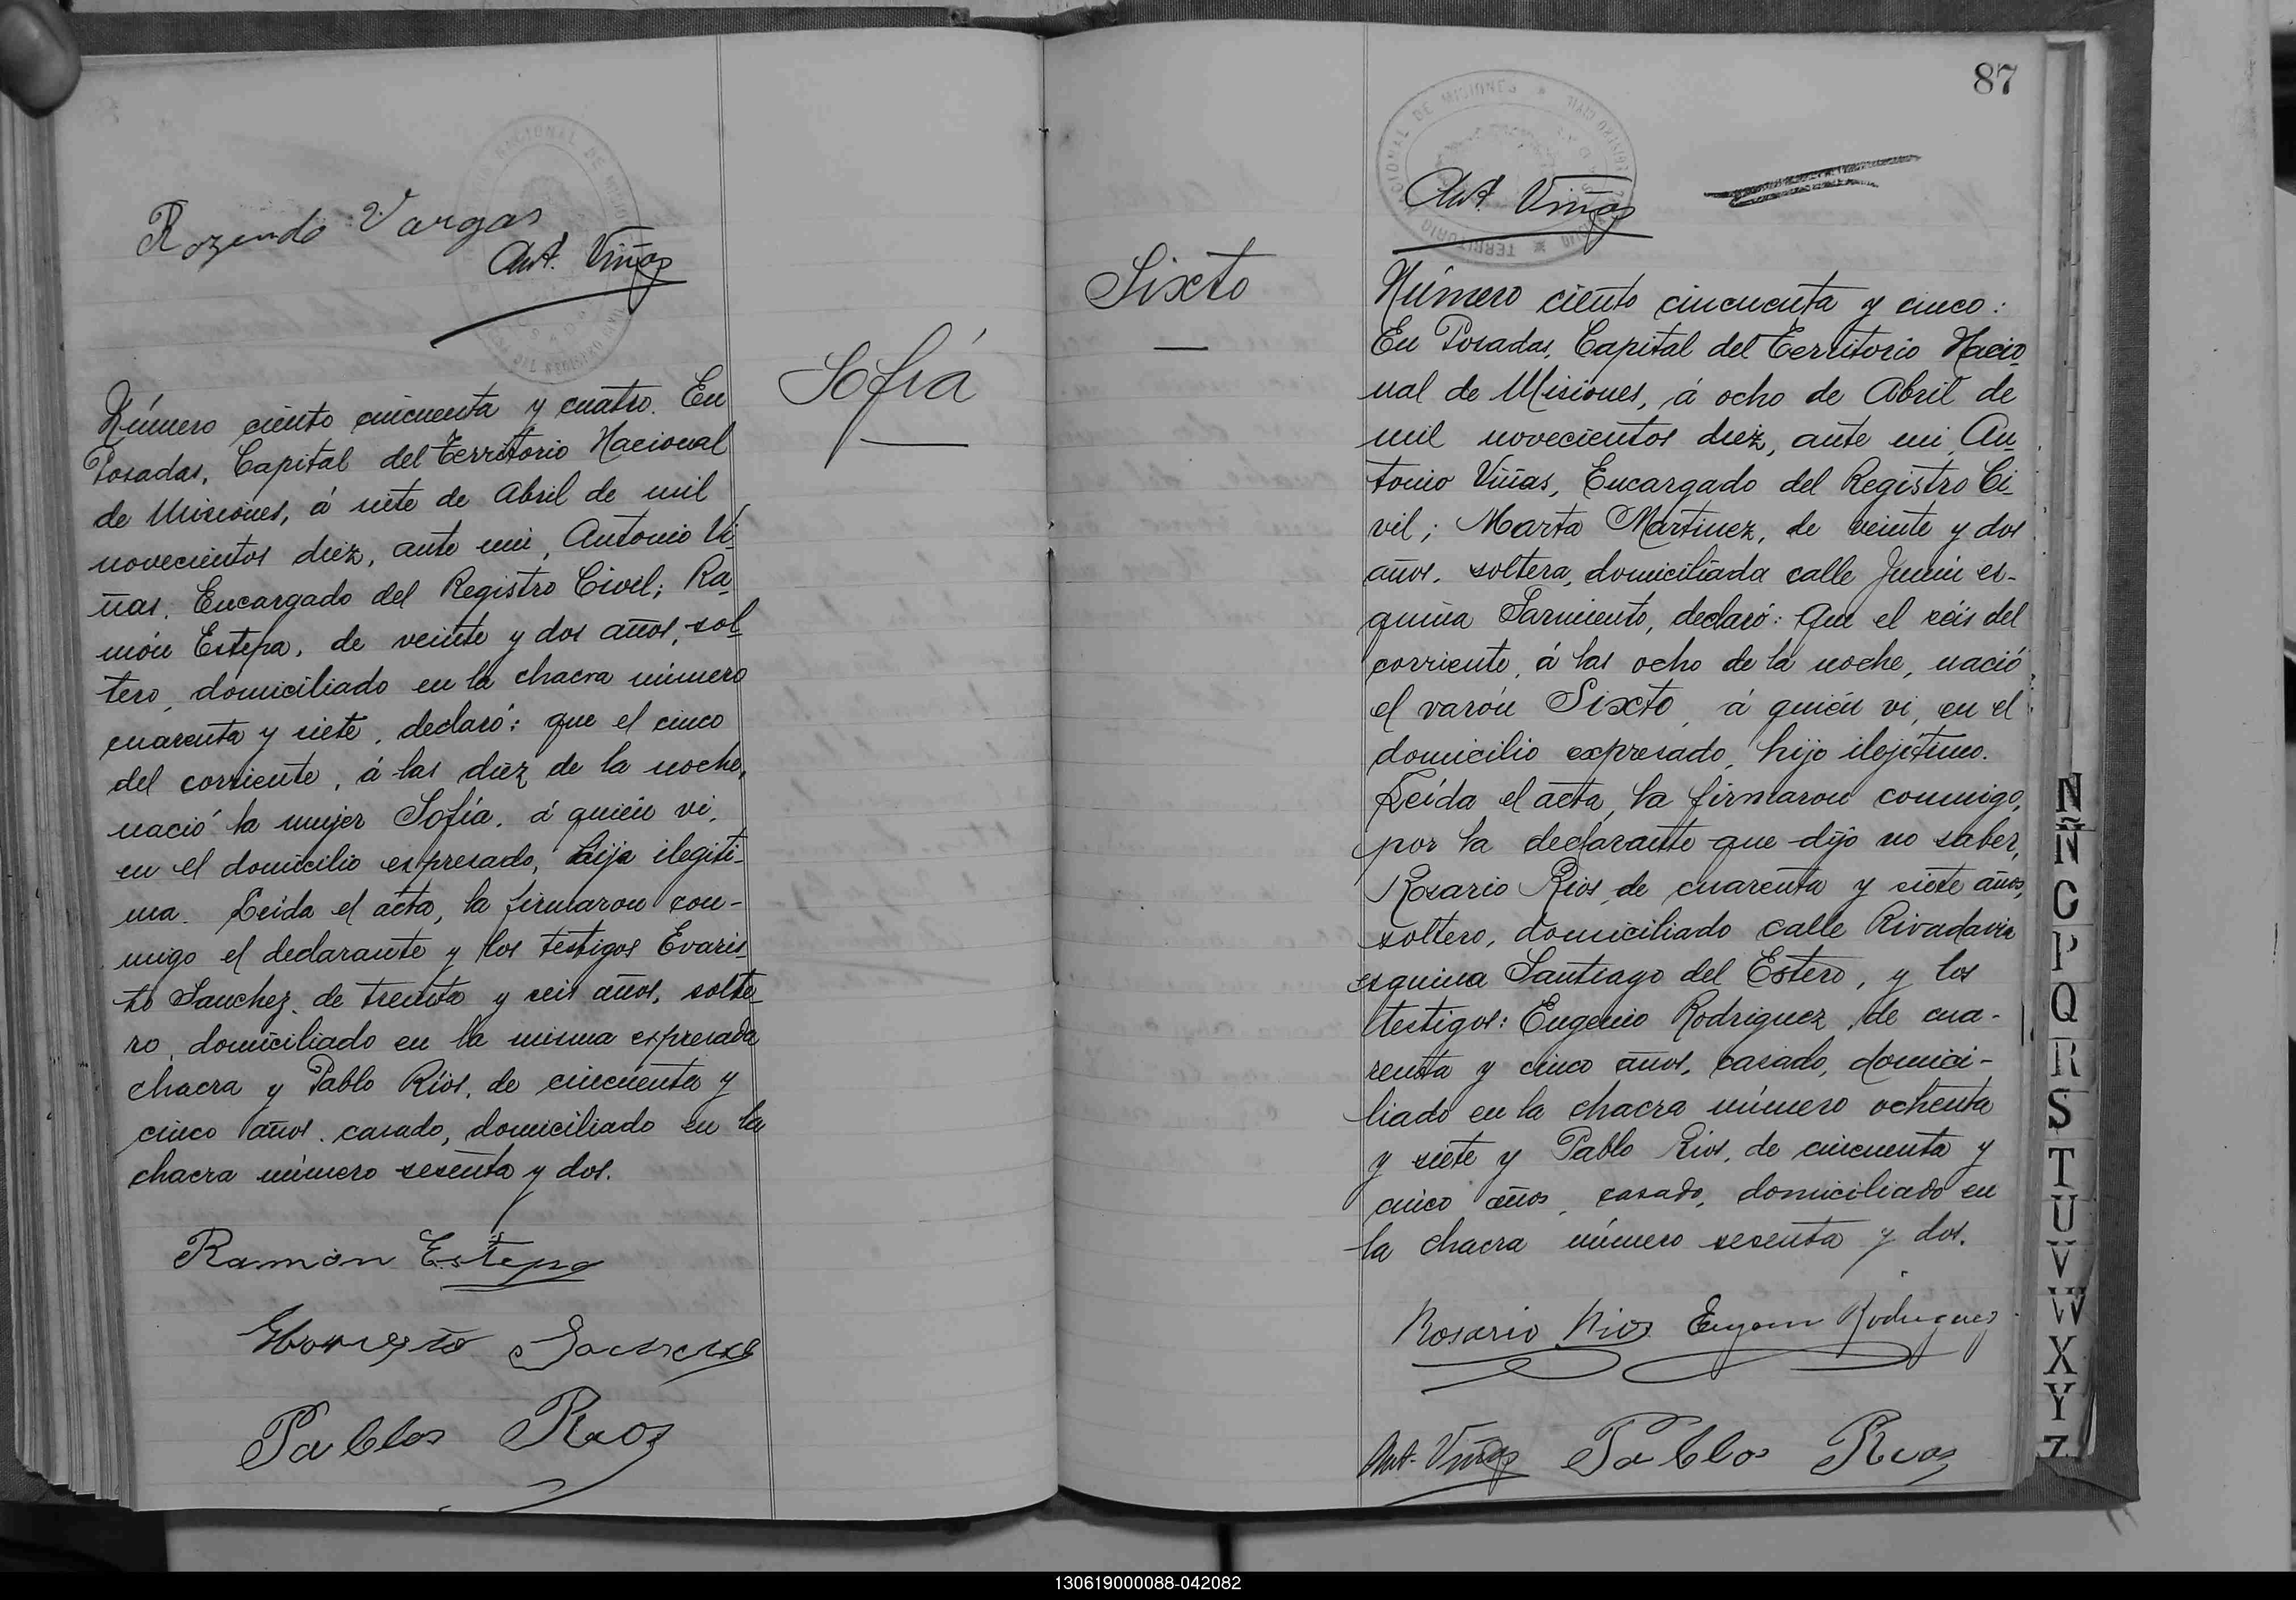 Rozendo Vargas
Ant. Viñas
Número ciento cincuenta y cuatro. En
Posadas, Capital del Territorio Nacional
de Misiones, á siete de Abril de mil
novecientos diez, ante mi, Antonio Vi-
ñas, Encargado del Registro Civil; Ra-
món Estepa, de veinte y dos años, sol-
tero, domiciliado en la chacra número
cuarenta y siete, declaró: que el cinco
del corriente, á las diez de la noche,
nació la mujer Sofía, á quién vi,
en el domicilio expresado, hija ilegiti-
ma. Leida el acta, la firmaron con-
migo el declarante y los testigos Evaris-
to Sanchez, de treinta y seis años, solte-
ro, domiciliado en la misma expresada
chacra y Pablo Ríos, de cincuenta y
cinco años, casado, domiciliado en la
chacra número sesenta y dos.
Ramón Estepa
Pablos Rios
Sofía
87
TERRITORIO NACIONAL DE MISIONES
Ant. Viñas
Sixto
Número ciento cincuenta y cinco:
En Posadas, Capital del Territorio Nacio-
nal de Misiones, á ocho de Abril de
mil novecientos diez, ante mi, An-
tonio Viñas, Encargado del Registro Ci-
vil; Marta Martinez, de veinte y dos
años, soltera, domiciliada calle Junin es-
quina Sarmiento, declaró: Que el séis del
corriente, á las ocho de la noche, nació
el varón Sixto, á quién vi, en el
domicilio expresado, hijo ilejítimo.
Leída el acta, la firmaron conmigo,
por la declarante que dijo no saber,
Rosario Rios, de cuarenta y siete años,
soltero, domiciliado calle Rivadavia
esquina Santiago del Estero, y los
testigos: Eugenio Rodriguez, de cua-
renta y cinco años, casado, domici-
liado en la chacra número ochenta
y siete y Pablo Rios, de cincuenta y
cinco años, casado, domiciliado en
la chacra número sesenta y dos.
Rosario Rios Eugenio Rodriguez
Ant. Viñas Pablos Rios
N
Ñ
O
P
Q
R
S
T
U
V
W
X
Y
Z
130619000088-042082